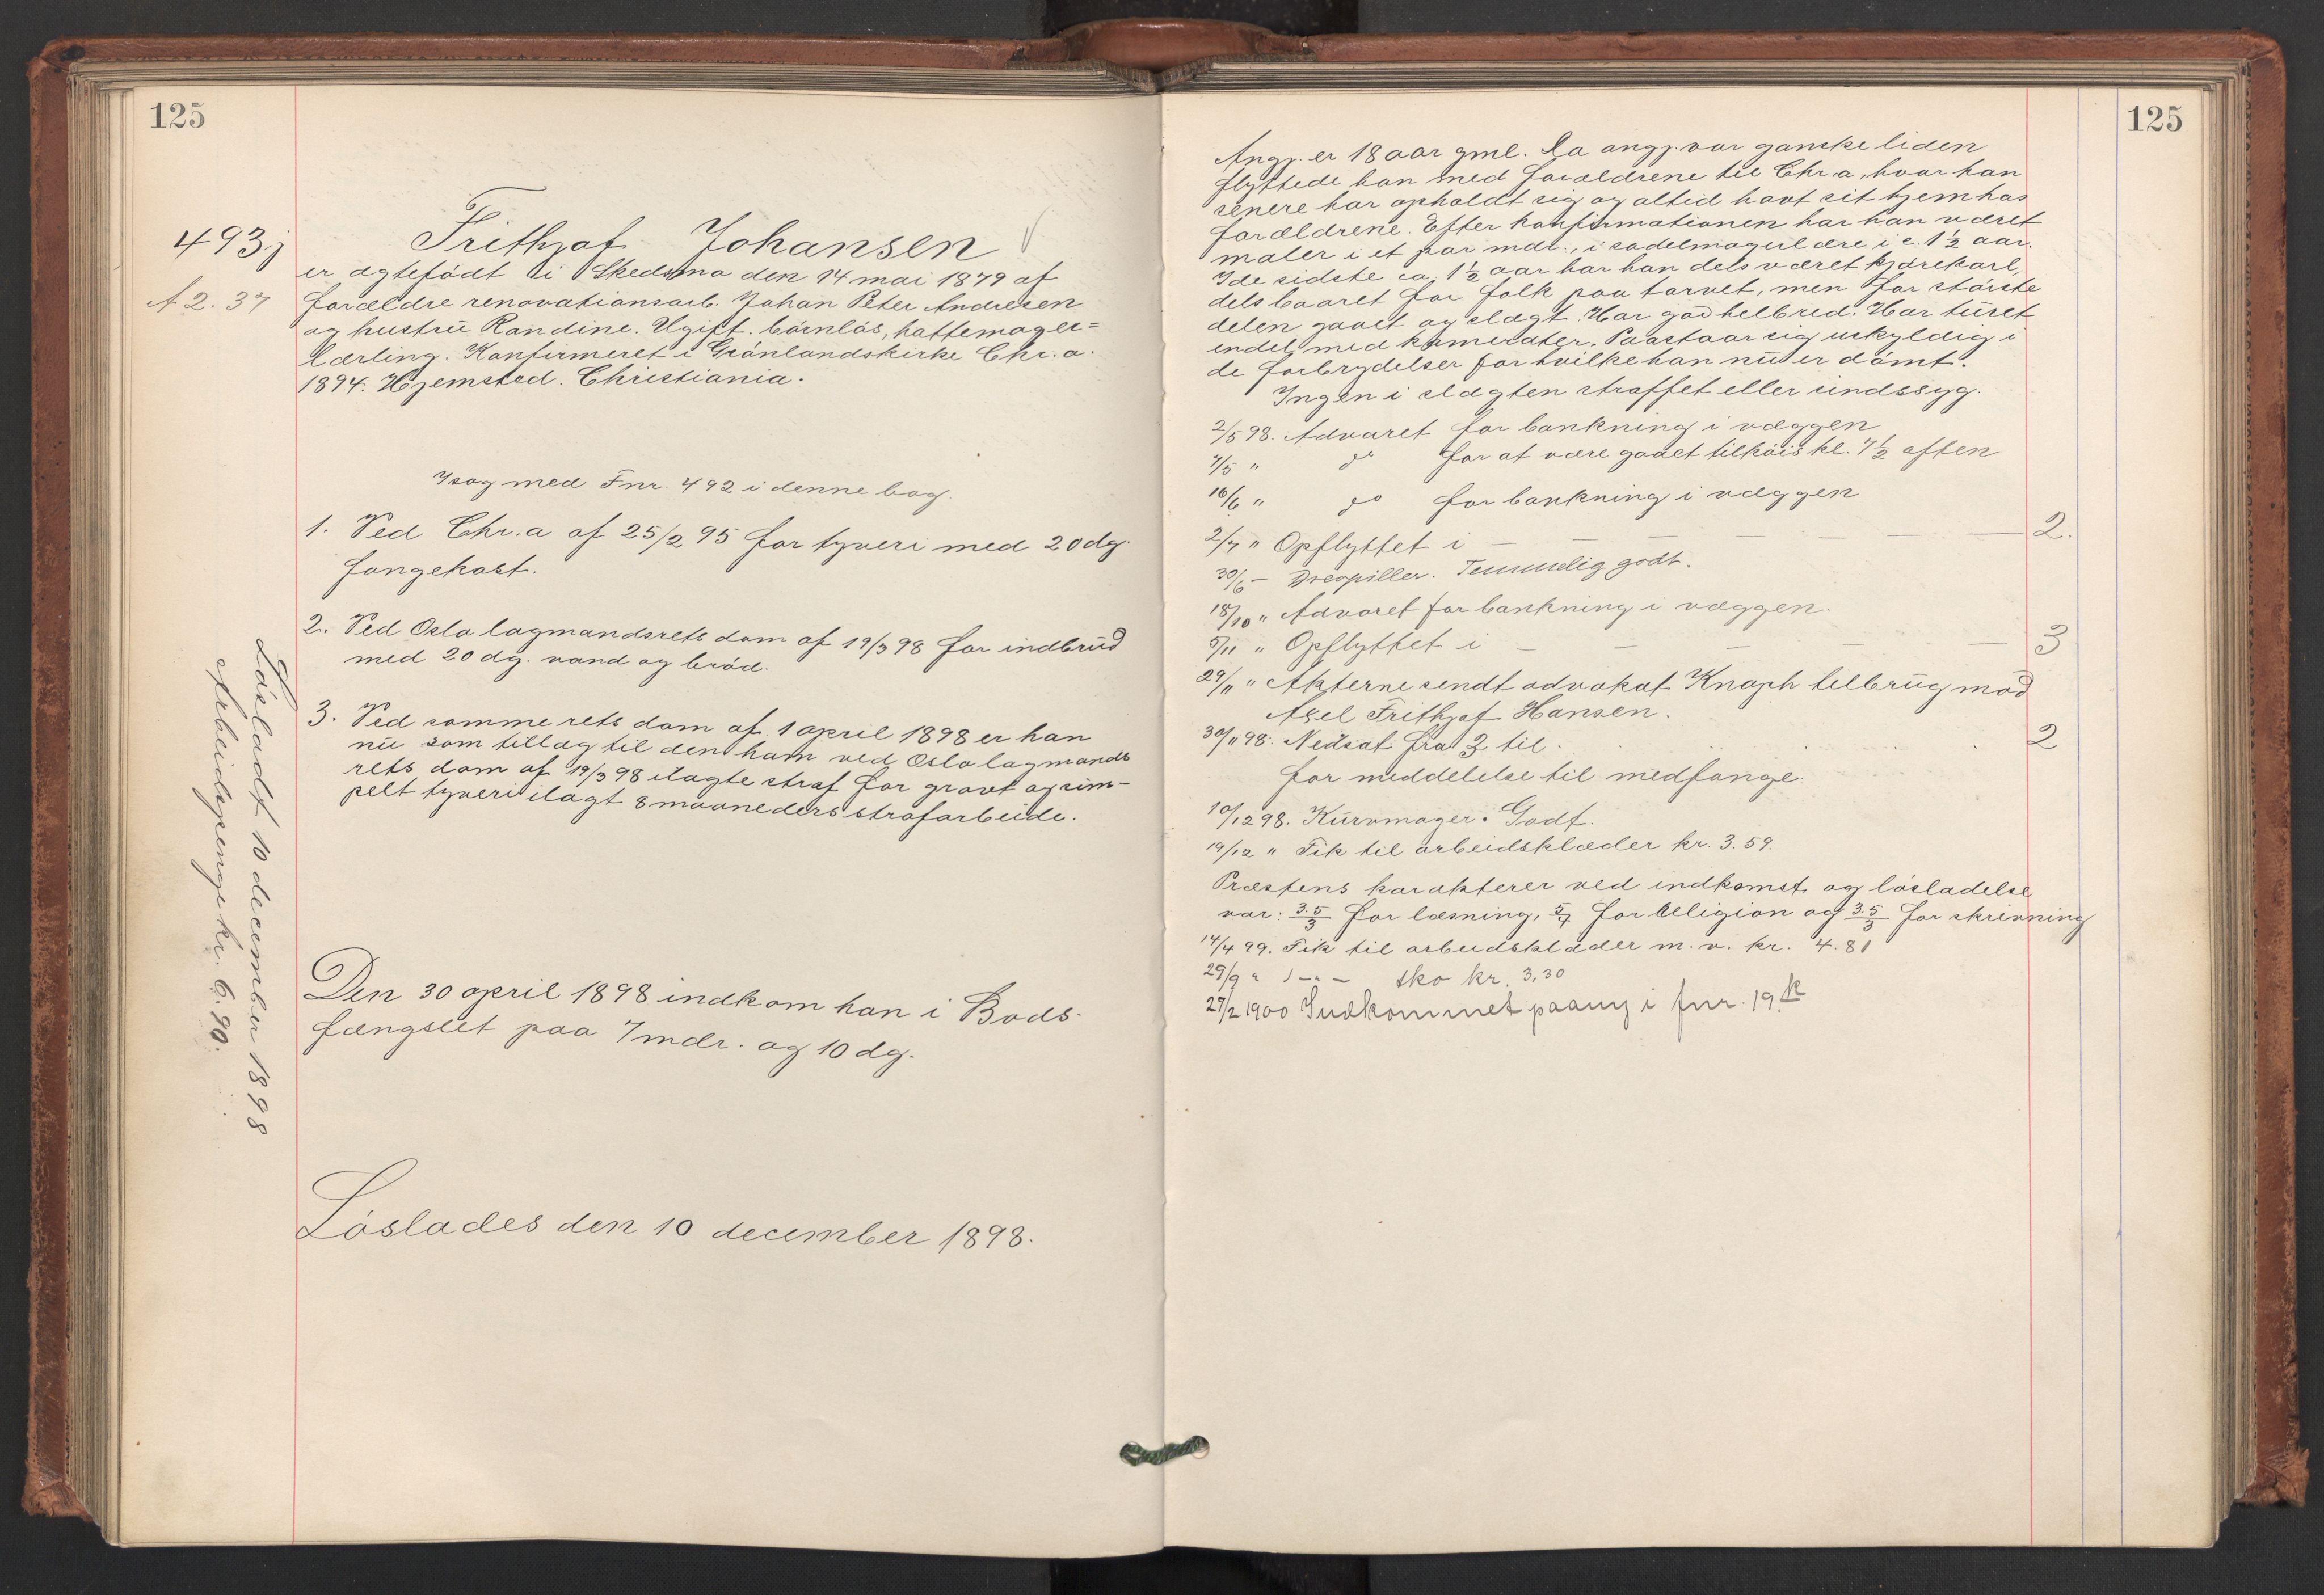 125
493j
A 2. 37
Frithjof Johansen
er ægtefödt i Skedsmo den 14 mai 1879 af
forældre renovationsarb. Johan Peter Andresen
og hustru Randine. Ugift. börnlös, hattemager=
lærling. Konfirmeret i Grönlandskirke Chr.a.
1894. Hjemsted. Christiania.
I sag med Fnr. 492 i denne bog.
1. Ved Chr.a af 25/2 95 for tyveri med 20 dg.
fangekost.
2. Ved Oslo lagmandsrets dom af 19/3 98 for indbrud
med 20 dg. vand og bröd.
3. Ved samme rets dom af 1 april 1898 er han
nu som tillæg til den ham ved Oslo lagmands
rets dom af 19/3 98 ilagte straf for grovt og sim-
pelt tyveri ilagt 8 maaneders strafarbeide.
Den 30 april 1898 indkom han i Bods-
fængslet paa 7 mdr. og 10 dg.
Löslades den 10 december 1898.
Lösladt 10 december 1898
Arbeidspenge kr. 6.90.
125
Angj. er 18 aar gml. Da angj. var ganske liden
flyttede han med forældrene til Chr.a, hvor han
senere har opholdt sig og altid havt sit hjem hos
forældrene. Efter konfirmationen har han været
maler i et par mdr., i sadelmagerlære i c. 1½ aar.
I de sidste ca. 1½ aar har han dels været kjörekarl,
dels baaret for folk paa torvet, men for störste
delen gaaet og slægt. Har god helbred. Har turet
endel med kamerater. Paastaar sig uskyldig i
de forbrydelser for hvilke han nu er dömt.
Ingen i slægten straffet eller sindssyg.
2/5 98. Advaret for bankning i væggen
7/5 " do for at være gaaet tilköis kl. 7½ aften
16/6 " do for bankning i væggen
2/7 " Opflyttet i — — — — — — 2.
30/6 – Temmelig godt.
18/10 " Advaret for bankning i væggen.
5/11 " Opflyttet i — — — — — 3
29/11 " Akterne sendt advokat Knoph til brug mod
Axel Frithjof Hansen.
30/11 98. Nedsat fra 3 til . . . . . 2
for meddelelse til medfange.
10/12 98. Kurvmager. Godt.
19/12 " Fik til arbeidsklæder kr. 3.59.
Præstens karakterer ved indkomst og lösladelse
var: 3.5/3 for læsning, 5/4 for religion og 3.5/3 for skrivning
14/4 99. Fik til arbeidsklæder m. v. kr. 4.81
29/9 " – " – sko kr. 3,30
27/2 1900 Indkommet paany i fnr. 19 k